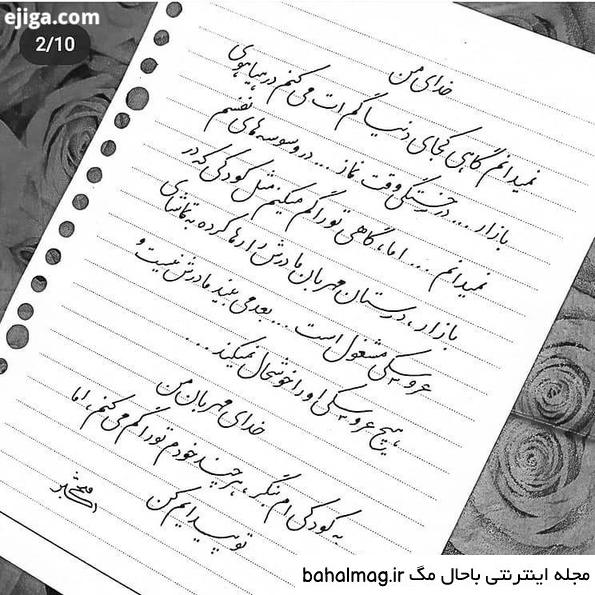 ejiga.com
2/10
خدای من
نمیدانم گاهی کجای دنیا گم ات می کنم در هیاهوی
بازار ... در خستگی وقت نماز ... در وسوسه های نفسم
نمیدانم ... اما، گاهی تو را گم میکنم مثل کودکی که در
بازار، دستان مهربان مادرش را رها کرده به تماشای
عروسکی مشغول است ... بعد می بیند مادرش نیست و
هیچ عروسکی او را خوشحال نمیکند ....
خدای مهربان من
به کودکی ام بنگر، هر چند خودم تو را گم می کنم، اما
تو پیدایم کن
مجله اینترنتی باحال مگ bahalmag.ir